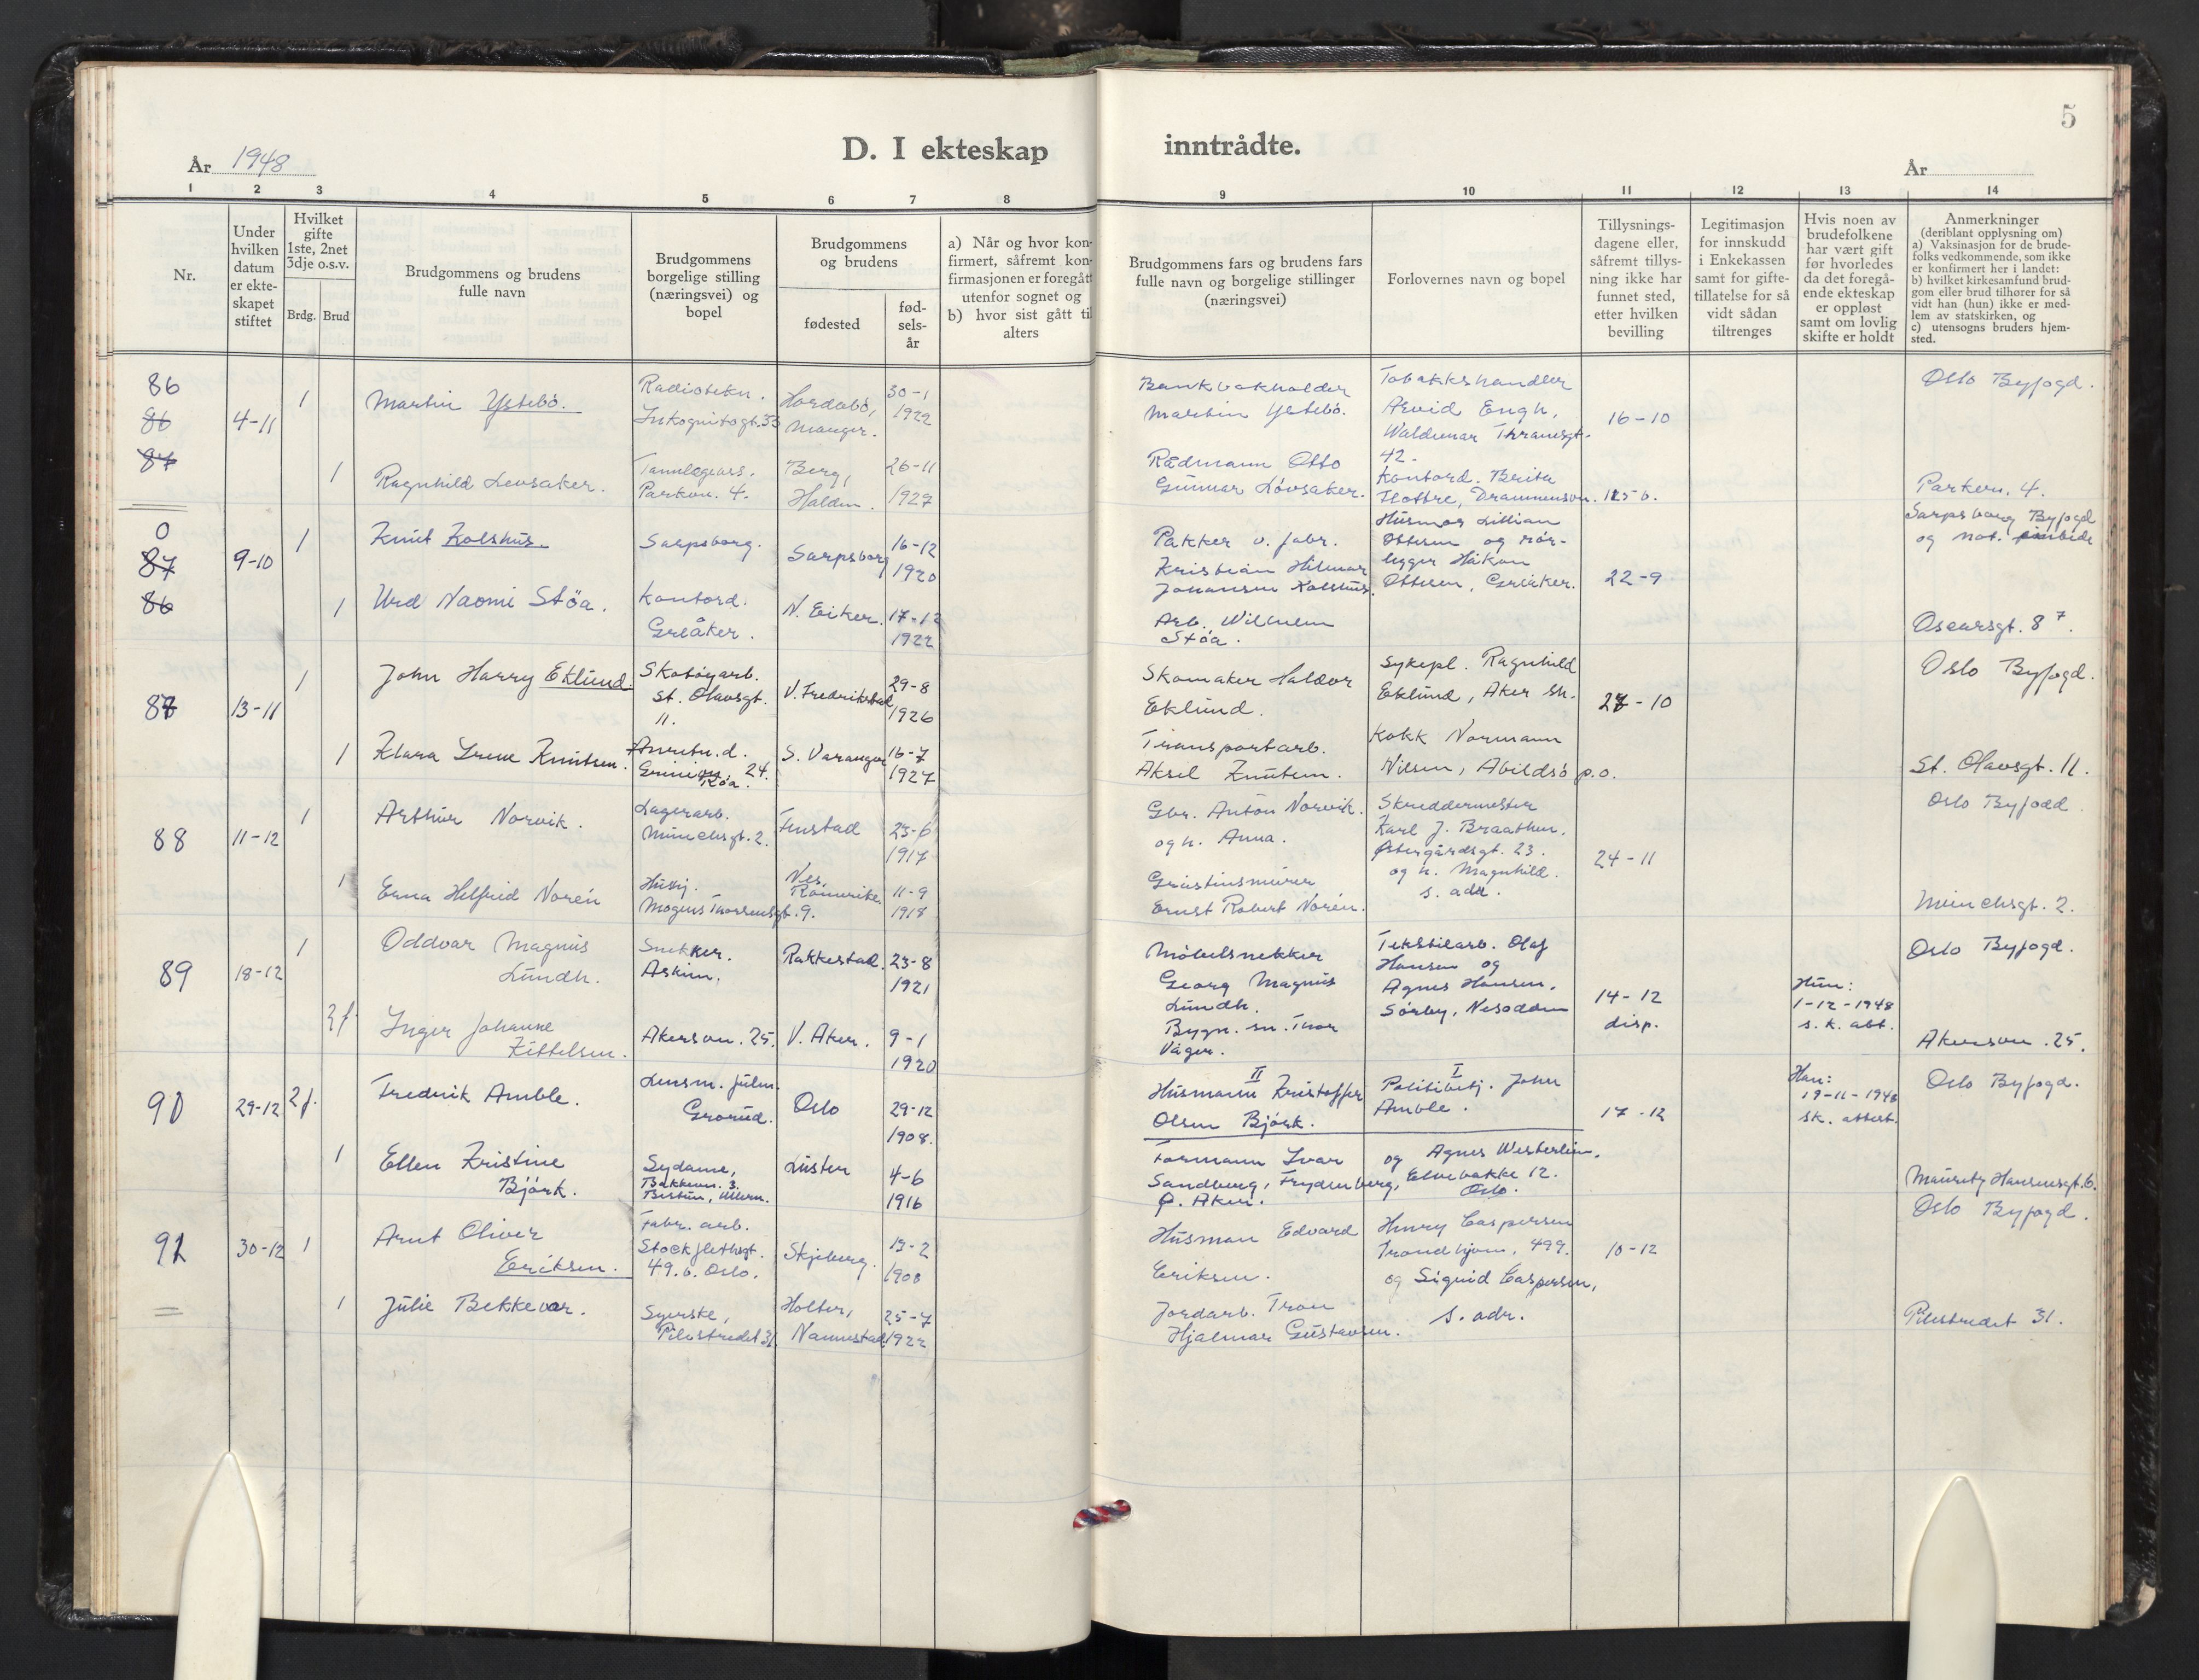 5
D. I ekteskap inntrådte.
År 1948
År
1 2 3 4 5 6 7 8 9 10 11 12 13 14
Nr.
Under hvilken datum er ekte- skapet stiftet
Hvilket gifte 1ste, 2net 3dje o.s.v.
Brdg. Brud
Brudgommens og brudens fulle navn
Brudgommens borgelige stilling (næringsvei) og bopel
Brudgommens og brudens
fødested
fød- sels- år
a) Når og hvor kon-
firmert, såfremt kon-
firmasjonen er foregått
utenfor sognet og
b) hvor sist gått til
alters
Brudgommens fars og brudens fars
fulle navn og borgelige stillinger
(næringsvei)
Forlovernes navn og bopel
Tillysnings-
dagene eller,
såfremt tillys-
ning ikke har
funnet sted,
etter hvilken
bevilling
Legitimasjon
for innskudd
i Enkekassen
samt for gifte-
tillatelse for så
vidt sådan
tiltrenges
Hvis noen av
brudefolkene
har vært gift
før hvorledes
da det foregå-
ende ekteskap
er oppløst
samt om lovlig
skifte er holdt
Anmerkninger
(deriblant opplysning om)
a) Vaksinasjon for de brude-
folks vedkommende, som ikke
er konfirmert her i landet:
b) hvilket kirkesamfund brud-
gom eller brud tilhører for så
vidt han (hun) ikke er med-
lem av statskirken, og
c) utensogns bruders hjem-
sted.
86
86
87
4-11
1
Martin Ystebö.
Radiotekn.
Inkognitogt. 33
Hordabö,
Manger.
30-1
1922
Bankbokholder
Martin Ystebö.
Tobakkshandler
Arvid Engh,
Waldemar Thranesgt.
42.
16-10
Oslo Byfogd.
1
Ragnhild Levsaker.
Tannlegeass.
Parkvn. 4.
Berg,
Halden.
26-11
1927
Rådmann Otto
Gunnar Lövsaker.
Kontord. Brita
Flottre, Drammensvn. 115 b.
Parkvn. 4.
0
87
86
9-10
1
Knut Kolshus.
Sarpsborg.
Sarpsborg
16-12
1920
Pakker v. fabr.
Kristian Hilmar
Johansen Kolshus.
Husmor Lillian
Ottesen og rör-
legger Håkon
Ottesen, Greåker.
22-9
Sarpsborg Byfogd
og not.
1
Urd Naomi Stöa.
Kontord.
Greåker.
N. Eiker.
17-12
1922
Arb. Wilhelm
Stöa.
Oscarsgt. 8 7.
87
13-11
1
John Harry Eklund.
Skotöyarb.
St. Olavsgt.
11.
V. Fredrikstad
29-8
1926
Skomaker Haldor
Eklund.
Sykepl. Ragnhild
Eklund, Aker sh.
27-10
Oslo Byfogd.
1
Klara Irene Knutsen.
Anretn. d.
Grinivn. 24.
Röa.
S. Varanger
16-7
1927
Transportarb.
Aksel Knutsen.
Kokk Normann
Nilsen, Abildsö p.o.
St. Olavsgt. 11.
88
11-12
1
Arthur Norvik.
Lagerarb.
Munchsgt. 2.
Finstad
23-6
1917
Gbr. Anton Norvik.
og h. Anna.
Skreddermester
Karl J. Braathen.
Østergårdsgt. 23.
og h. Magnhild.
s. adr.
24-11
Oslo Byfodd
1
Erna Helfrid Norén
Hushj.
Mogens Thorsensgt. 9.
Nes,
Romerike.
11-9
1918
Grustinsmurer
Ernst Robert Norén.
Munchsgt. 2.
89
18-12
1
Oddvar Magnus
Lundh.
Snekker.
Askim.
Rakkestad.
23-8
1921
Möbelsnekker
Georg Magnus
Lundh.
Tekstilarb. Olaf
Hansen og
Agnes Hansen,
Sörby, Nesodden
14-12
disp.
Hun:
1-12-1948
s. k. att.
Oslo Byfogd.
2 f.
Inger Johanne
Kittelsen.
Akersvn. 25.
V. Aker.
9-1
1920
Bygn. sn. Thor
Våger.
Akersvn. 25.
90
29-12
2 f.
Fredrik Amble.
Lensm. fulm.
Grorud.
Oslo
29-12
1908.
II
Husmann Kristoffer
Olsen Björk.
I
Politibetj. John
Amble.
17-12
Han:
19-11-1948
sk. attest.
Oslo Byfogd.
1
Ellen Kristine
Björk.
Sydame,
Bakkevn. 3.
Bestun, Ullern.
Luster
4-6
1916
Formann Ivar
Sandberg, Frydenberg,
Ø. Aker.
og Agnes Westerlin.
Elvebakke 12.
Oslo.
Mauritz Hansensgt. 6.
91
30-12
1
Arnt Oliver
Eriksen.
Fabr. arb.
Stockflethsgt.
49. b. Oslo.
Skjeberg.
13-2
1908
Husman Edvard
Eriksen.
Henry Caspersen
Trondhjem, 499.
og Sigrid Caspersen,
s. adr.
10-12
Oslo Byfogd.
1
Julie Bekkevar.
Syerske,
Pilestredet 31
Holter,
Nannestad
25-7
1922
Jordarb. Tron
Hjalmar Gustavsen.
Pilestredet 31.